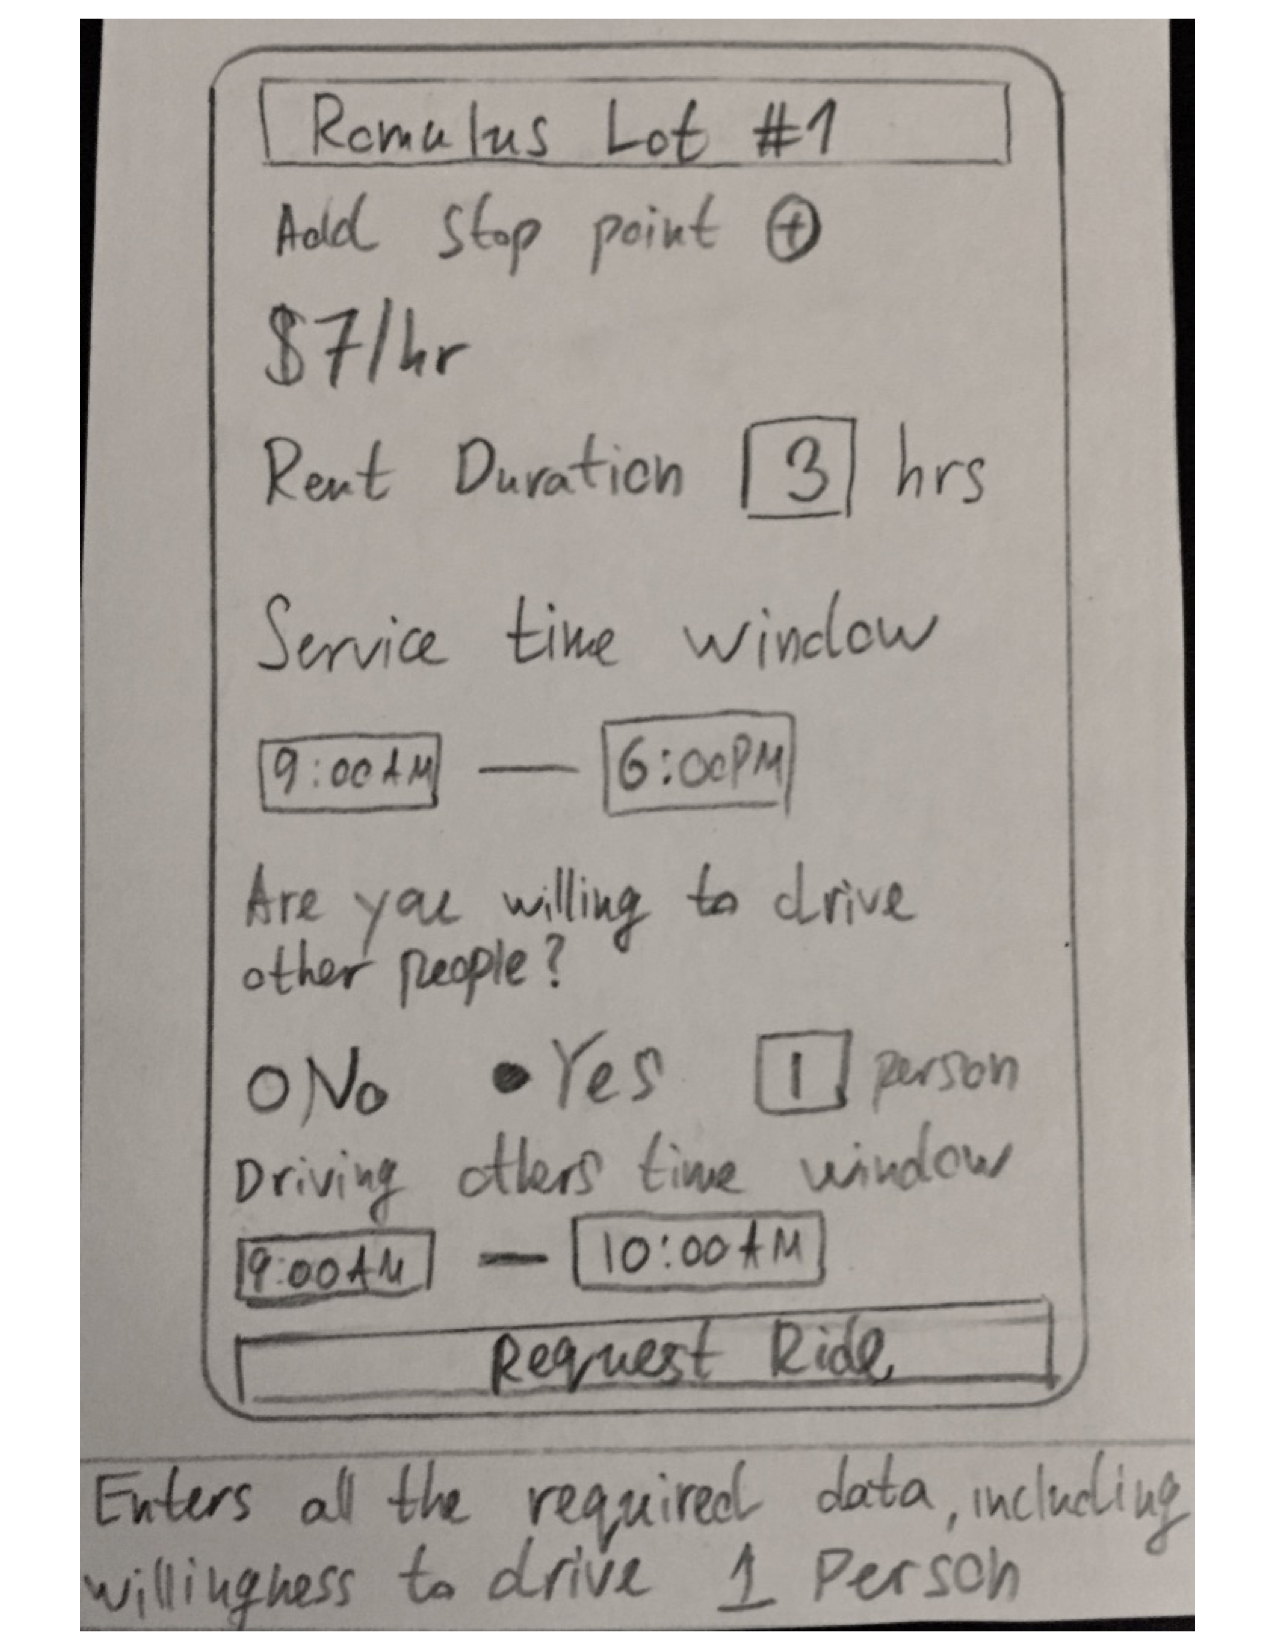 Romulus Lot #1
Add stop point +
$7/hr
Rent Duration 3 hrs
Service time window
9:00AM — 6:00PM
Are you willing to drive
other people?
No Yes 1 person
Driving others time window
9:00AM — 10:00AM
Request Ride
Enters all the required data, including
willingness to drive 1 Person